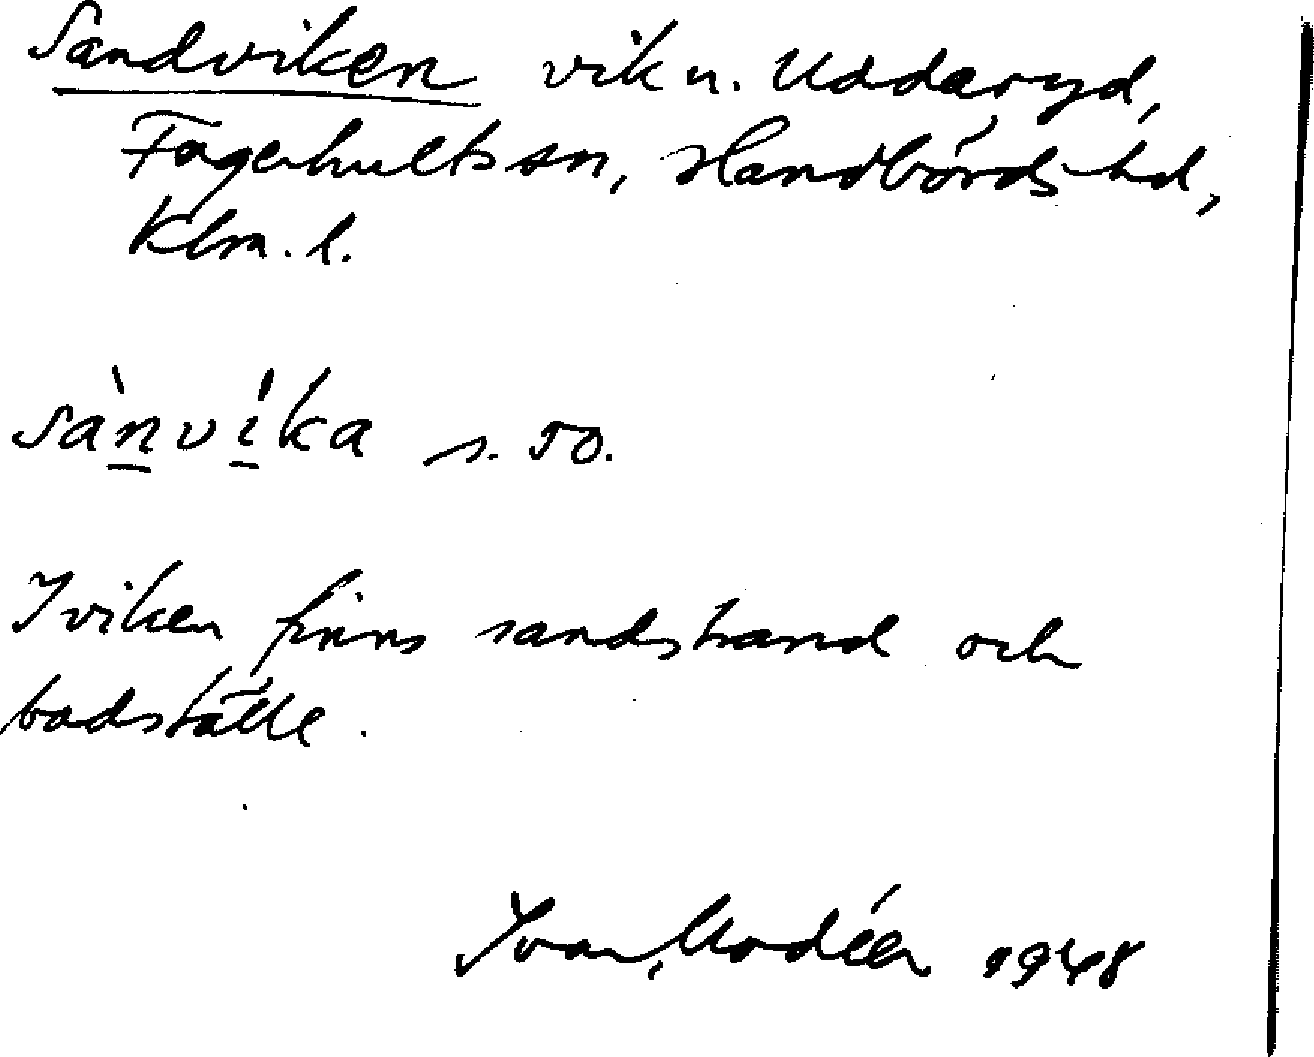 Sandviken vik u. Uddaryd,
Fagerhults sn, Handbörds hd,
Klm. l.
sànvíka s. 50.
I viken finns sandstrand och
badställe.
Ivar Modéer 1948